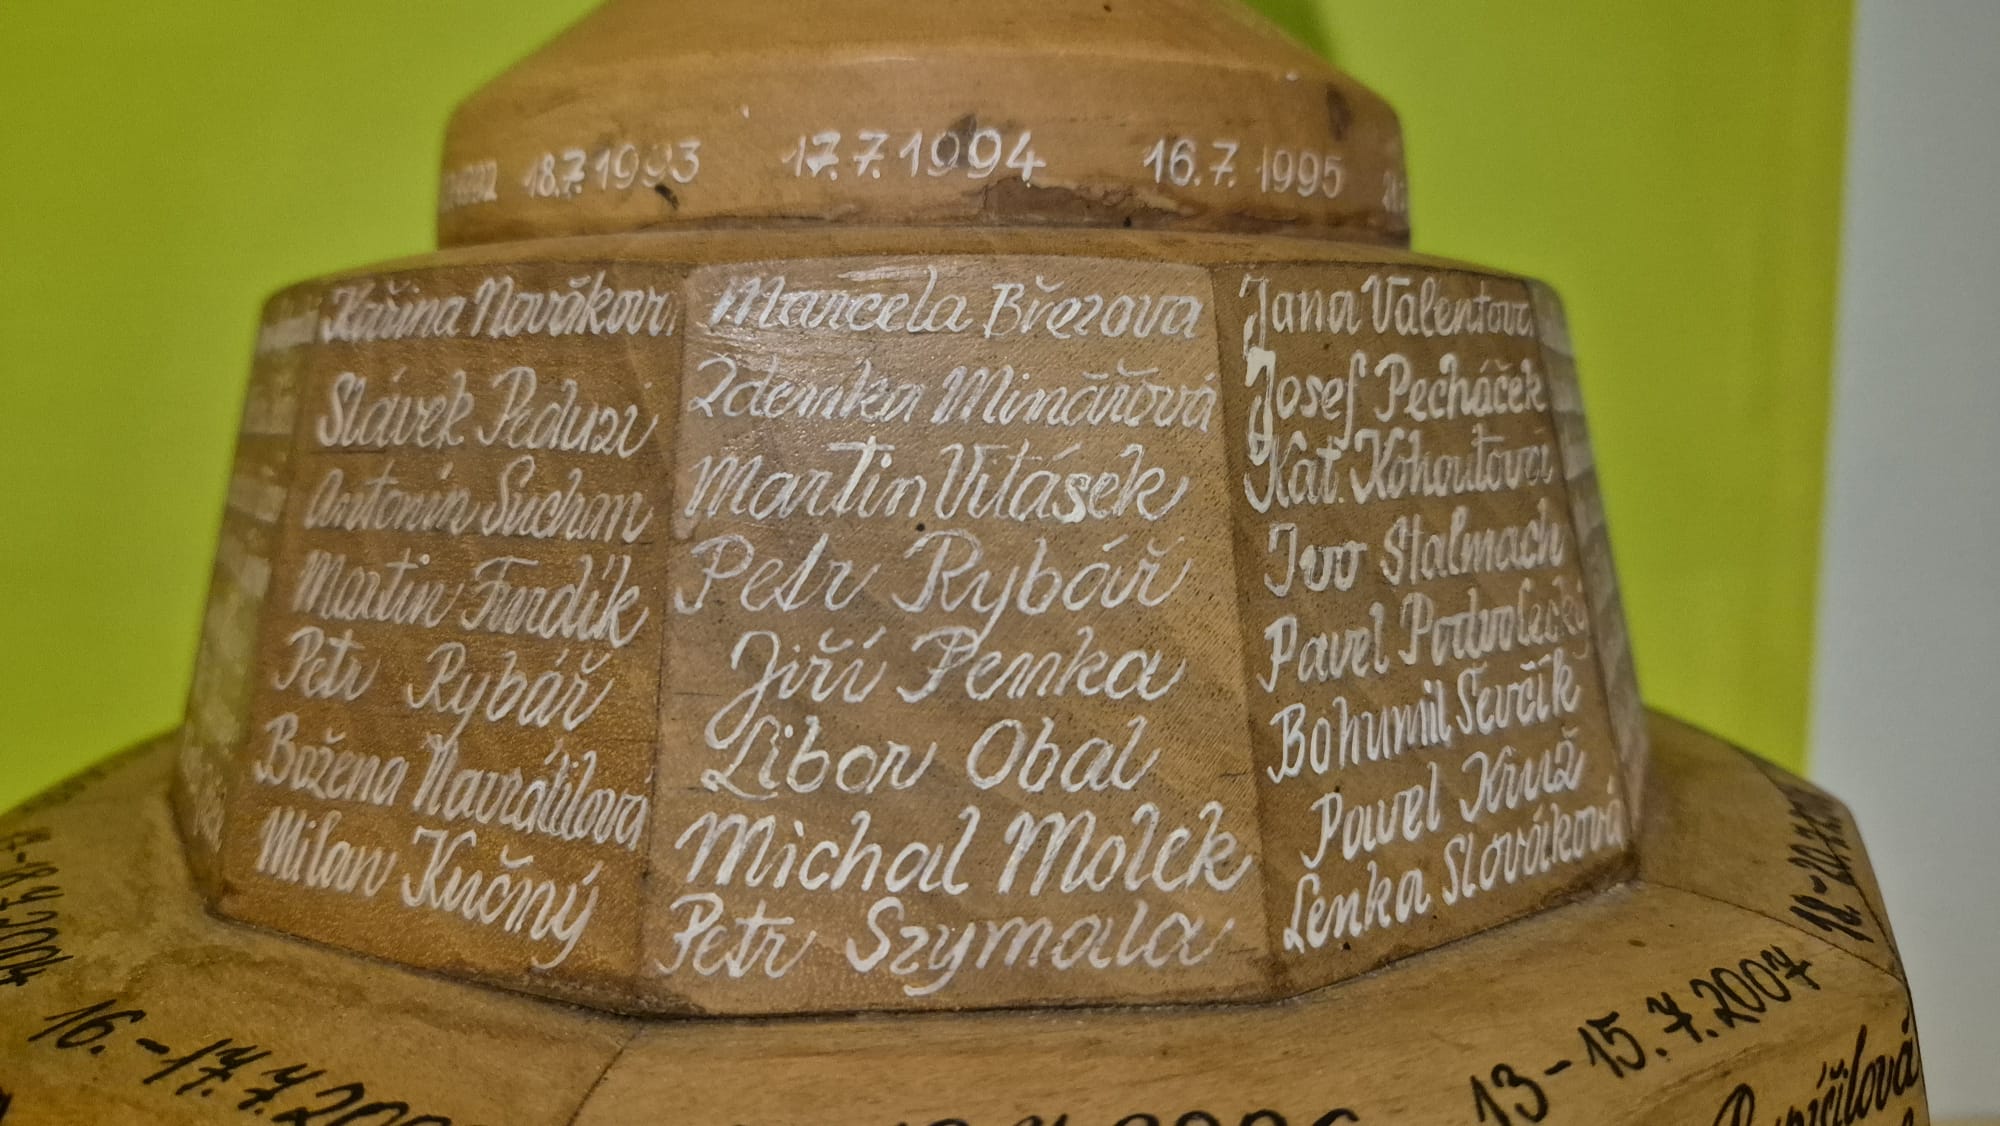 18.7.1993
17.7.1994
16.7.1995
Kařina Nováková
Slávek Peduzi
Antonín Suchan
Martin Furdík
Petr Rybář
Božena Navrátilová
Milan Kučný
Marcela Březova
Zdenka Minářová
Martin Vitásek
Petr Rybář
Jiří Penka
Libor Obal
Michal Molck
Petr Szymala
Jana Valentova
Josef Pecháček
Kat. Kohoutová
Ivo Stalmach
Pavel Podvolecký
Bohumil Ševčík
Pavel Kruž
Lenka Slováková
16.-17.7.
13-15.7.2007